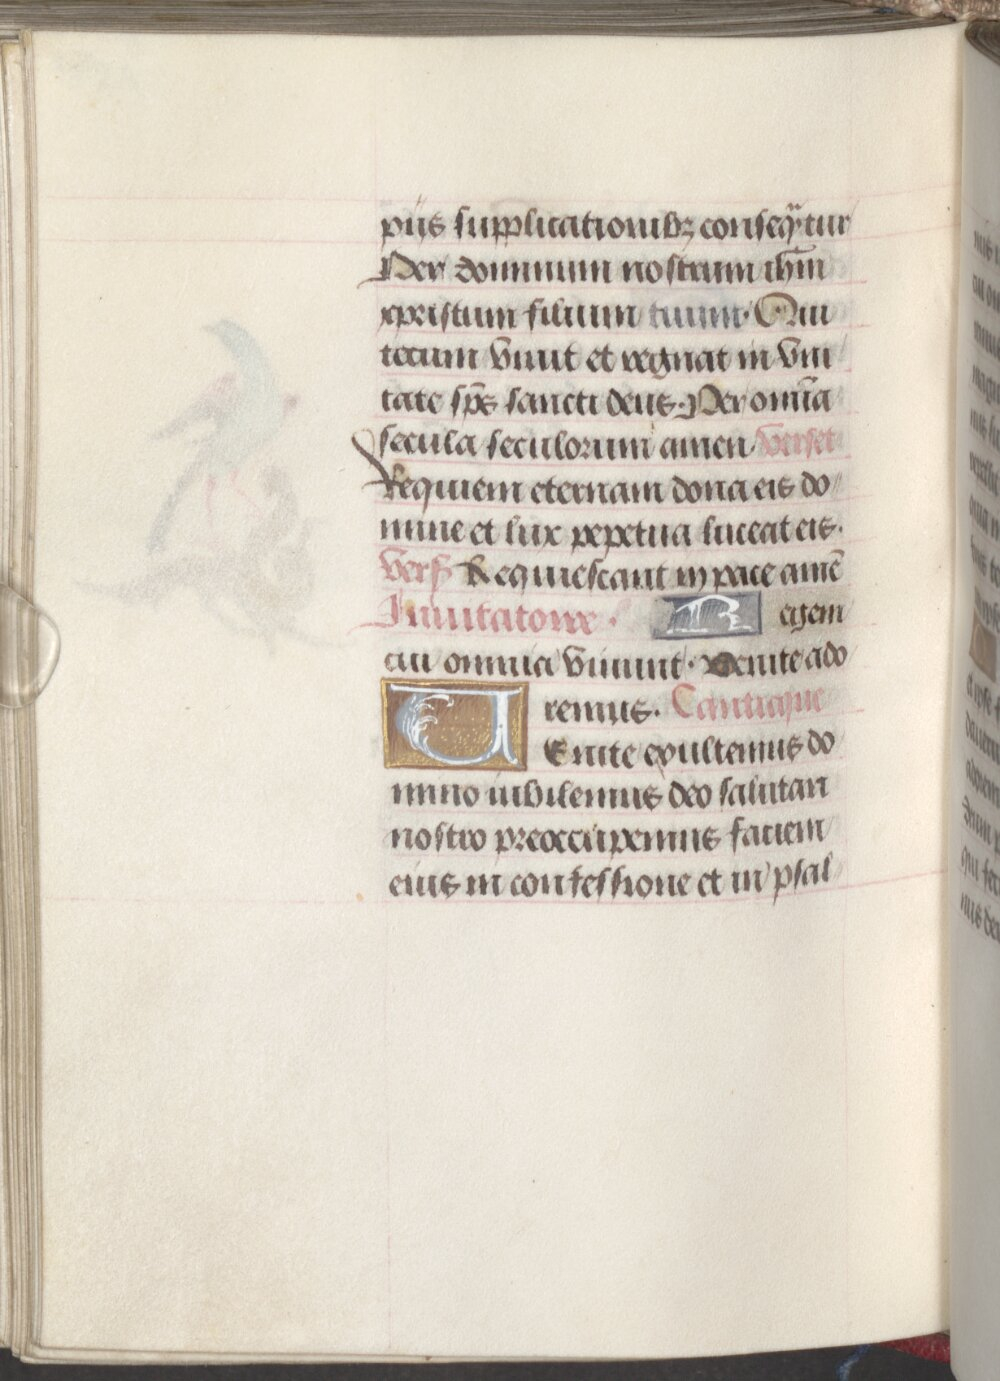 piis supplicationibꝫ conseq̃tur
Per dominum nostrum ihm̄
xpristum filium tuum · Qui
tecum viuit et regnat in vni
tate sp̄s sancti deus · Per omīa
secula seculorum amen verset
Requiem eternam dona eis do
mine et lux pepetua luceat eis ·
vers Requiescant in pace amē
Inuitatoire · Regem
cui omnia viuunt · Venite ado
remus · Cantique
VEnite exultemus do
mino iubilemus deo salutari
nostro preoccupemus faciem
eius in confessione et in psal